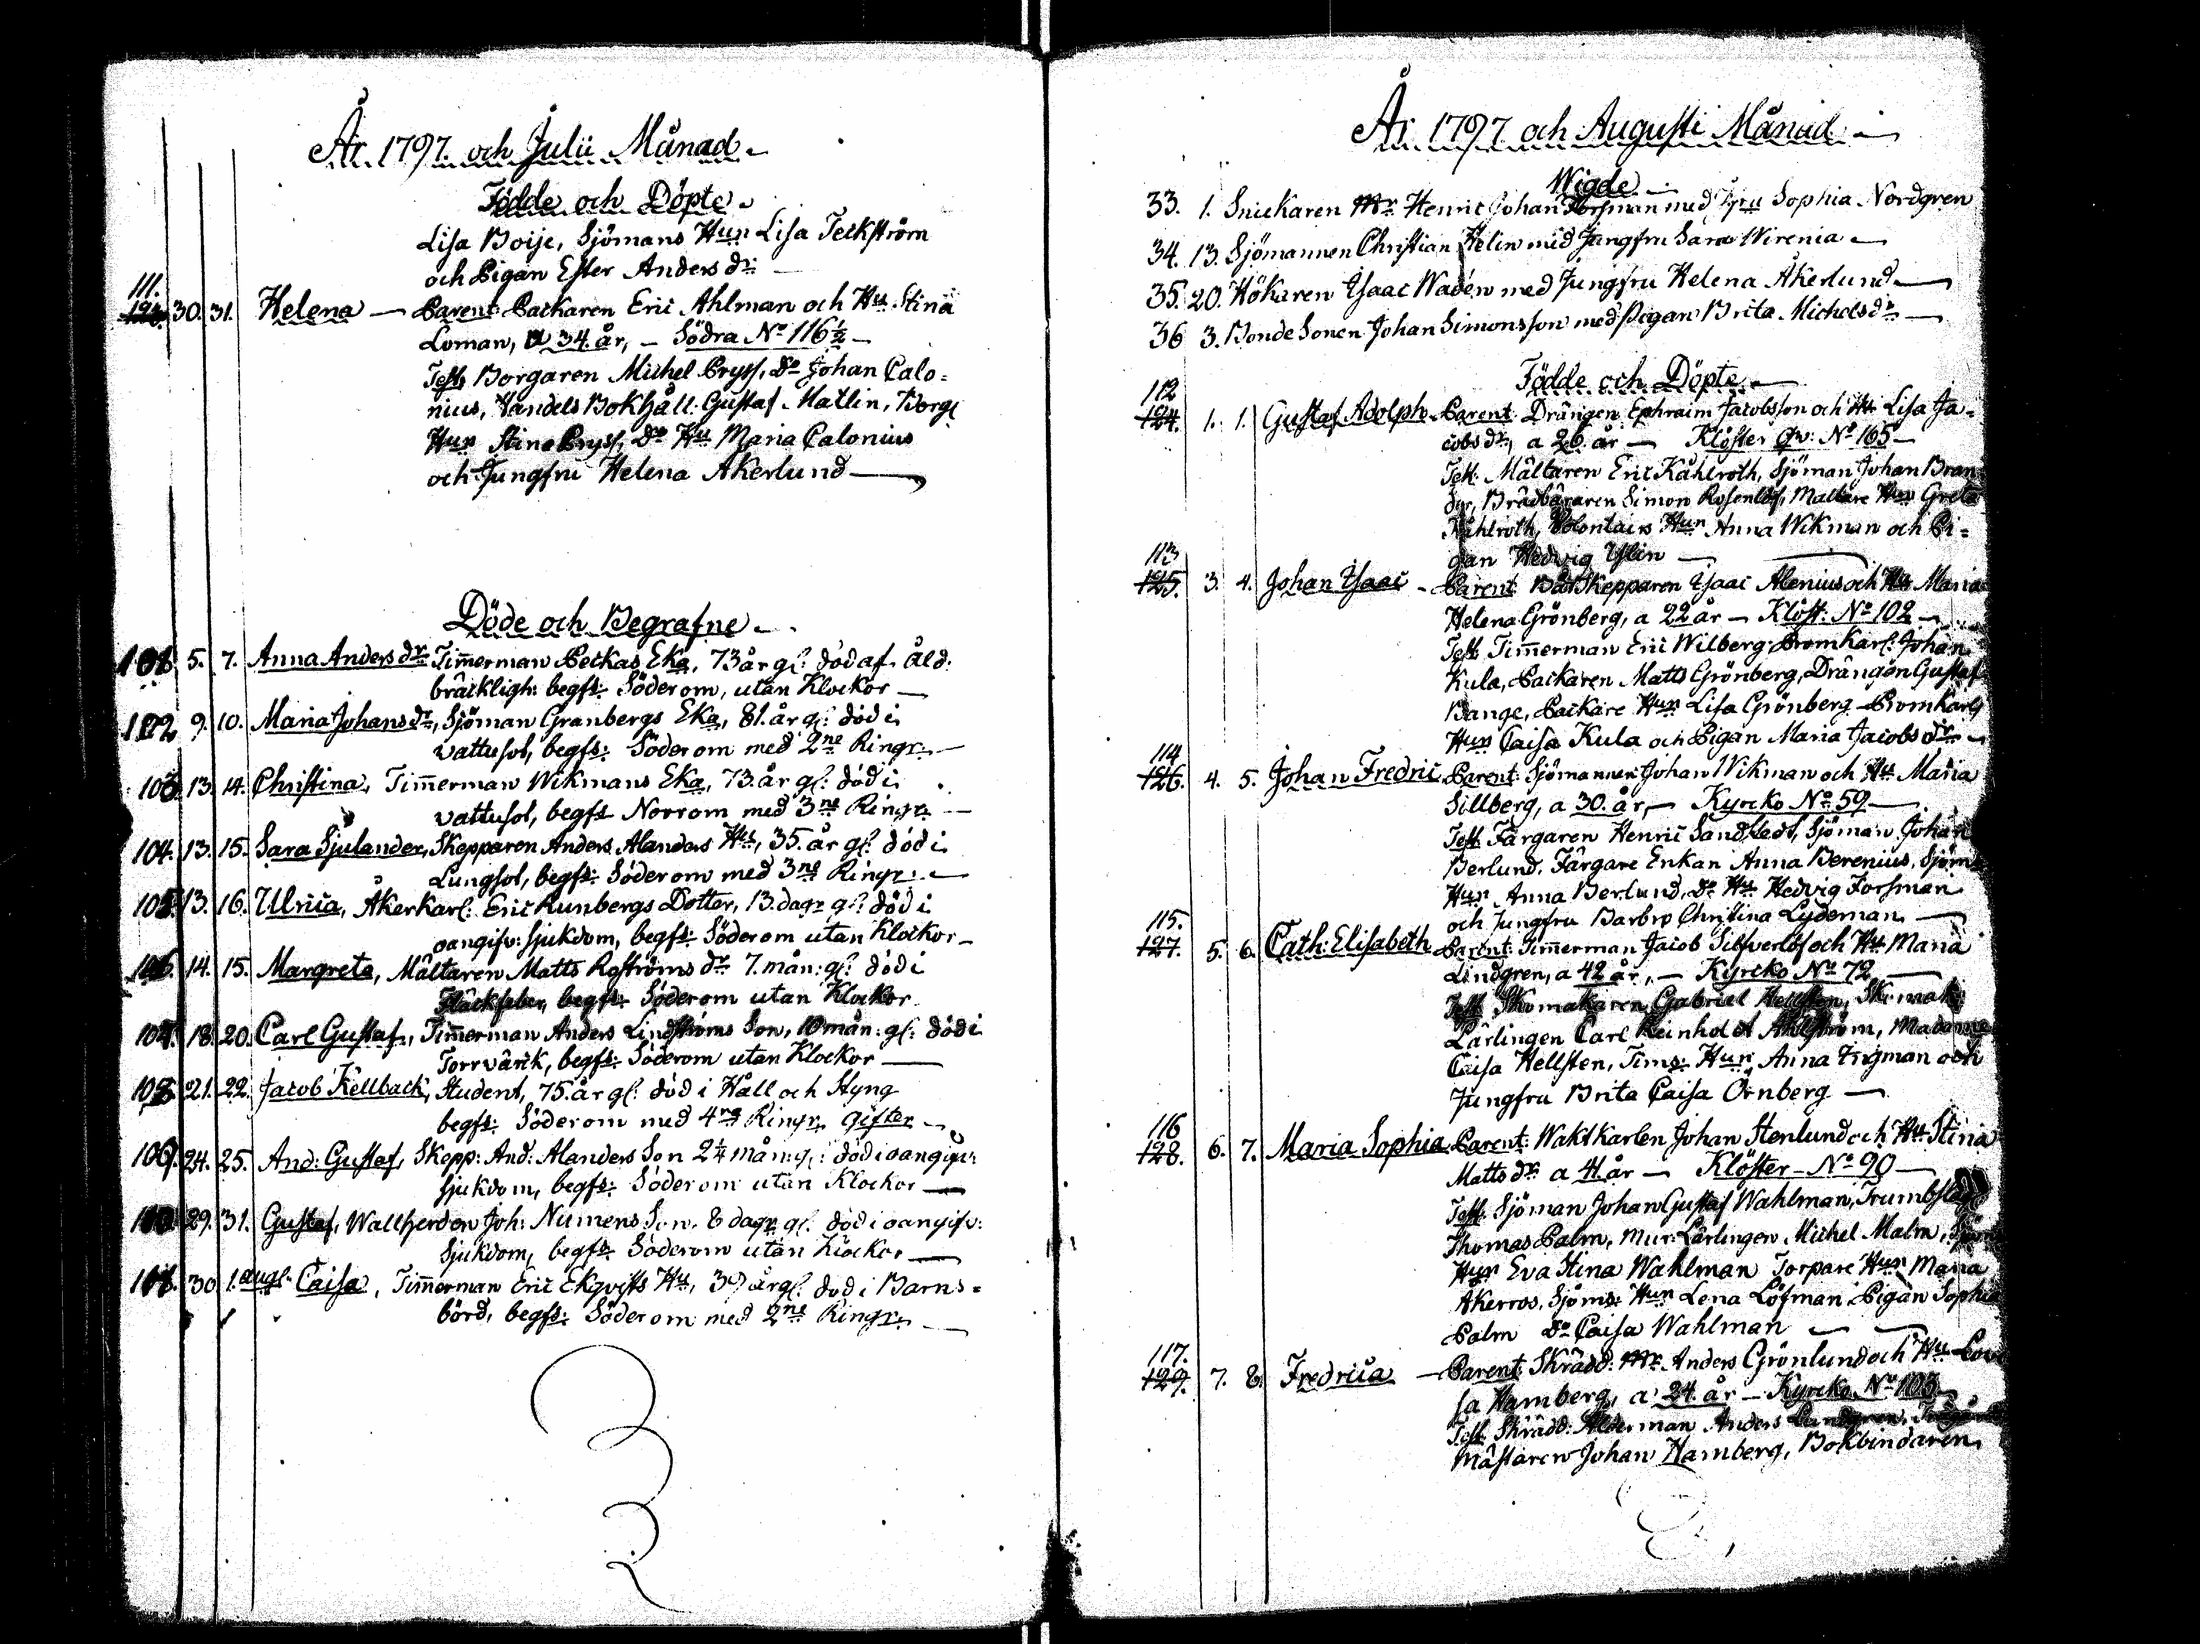 År 1797. och Julii Månad.
Födde och Döpte.
Lisa Boije, Sjömans Hun Lisa Teckström
och Pigan Ester Anders dr.
111.
30. 31. Helena — Parent: Packaren Eric Ahlman och Hu Stina
Loman, a 34. år, — Södra No 116½ —
Test: Borgaren Michel Pryss, Do Johan Calo=
nius, Handels Bokhåll: Gustaf Matlin, Borg:
Hun Stina Pryss, Do Hu Maria Calonius
och Jungfru Helena Åkerlund —
Döde och Begrafne.
5. 7. Anna Anders dr. Timmerman Peckas Eka, 73 år gl: död af Åld:
bräckligh: begfs: Söder om, utan Klockor —
9. 10. Maria Johans dr, Sjöman Granbergs Eka, 81. år gl: död i
vattusot, begfs: Söder om med 2ne Ringr. —
103. 13. 14. Christina, Timmerman Wikmans Eka, 73. år gl: död i
vattusot, begfs Norr om med 3ne Ringr. —
104. 13. 15. Sara Sjulander, Skepparen Anders Alanders Hu, 35. år gl: död i
Lungsot, begfs: Söder om med 3ne Ringr. —
105. 13. 16. Ulrica, Åkerkarl: Eric Runbergs Dotter, 13. dagr gl: död i
oangifv: sjukdom, begfs: Söder om utan Klockor —
14. 15. Margreta, Mältaren Matts Roströms dr 7. mån: gl: död i
Fläckfeber, begfs: Söder om utan Klockor
18. 20. Carl Gustaf, Timmerman Anders Lindströms Son, 10 mån: gl: död i
Torrvärck, begfs: Söder om utan Klockor —
21. 22. Jacob Kellback, Student, 75. år gl: död i Håll och Styng
begfs: Söder om med 4ra Ringr. Gifter —
109. 24. 25. And: Gustaf, Skepp: And: Alanders Son 2¼ mån: gl: död i oangifv:
sjukdom, begfs: Söder om utan Klockor —
29. 31. Gustaf, Wallherden Joh: Numens Son, 8 dagr gl. död i oangifv:
sjukdom, begfs: Söder om utan Klockor —
30 1. augl. Caisa, Timmerman Eric Ekqvists Hu, 39 år gl: död i Barns=
börd, begfs: Söder om med 2ne Ringr. —
År 1797. och Augusti Månad —
Wigde. —
33. 1. Snickaren Mr Henric Johan Forsman med Jfru Sophia Nordgren
34. 13. Sjömannen Christian Helin med Jungfru Sara Wirenia —
35. 20. Hökaren Isaac Wadén med Jungfru Helena Åkerlund —
36 3. Bonde Sonen Johan Simonsson med Pigan Brita Michelsdr —
Födde och Döpte —
112
124. 1. 1. Gustaf Adolph. Parent: Drängen Ephraim Jacobsson och Hu Lisa Ja=
cobs dr, a 26. år — Klöster Qv: No 165 —
Test: Mältaren Eric Kåhlroth, Sjöman Johan Bran
der, Brädbäraren Simon Rosenlöf, Maltare Hun Greta
Kåhlroth, Volontairs Hun Anna Wikman och Pi=
gan Hedvig Islin —
113
125. 3. 4. Johan Isaac — Parent: Båt Skepparen Isaac Alenius och Hu Maria
Helena Grönberg, a 22 år — Klöst: No 102 —
Test: Timmerman Eric Wilberg Promkarl: Johan
Kula, Packaren Matts Grönberg, Drängen Gustaf
Bange, Packare Hun Lisa Grönberg Promkarls
Hun Caisa Kula och Pigan Maria Jacobs dr —
114
126. 4. 5. Johan Fredric Parent: Sjömannen Johan Wikman och Hu Maria
Sillberg, a 30. år, — Kyrcko No 59 —
Test: Färgaren Henric Sandstedt, Sjöman Johan
Berlund, Färgare Enkan Anna Berenius, Sjöms
Hun Anna Berlund, Do Hu Hedvig Forsman
och Jungfru Barbro Christina Lydeman. —
115.
127. 5. 6. Cath: Elisabeth Parent: Timmerman Jacob Silfverlöf och Hu Maria
Lindgren, a 42 år, — Kyrcko No 72 —
Test: Skomakaren Gabriel Hellsten, Skomak:
Lärlingen Carl Reinholdt Ahlström, Madame
Caisa Hellsten, Tims: Hun Anna Ingman och
Jungfru Brita Caisa Örnberg —
116
128. 6. 7. Maria Sophia Parent: Waktkarlen Johan Stenlund och Hu Stina
Matts dr a 41. år — Klöster — No 90 —
Test: Sjöman Johan Gustaf Wahlman, Trumbslag
Thomas Palm, Mur: Lärlingen Michel Malm, Sjöm
Hun Eva Stina Wahlman Torpare Hun Maria
Åkerros, Sjöms: Hun Lena Löfman Pigan Sophia
Palm Do Caisa Wahlman —
117.
129. 7. 8. Fredrica — Parent: Skrädd: Mr Anders Grönlund och Hu Lovi
sa Hamberg, a 24. år — Kyrcko No 103 —
Test: Skrädd: Ålderman Anders
Mästaren Johan Hamberg, Bokbindaren